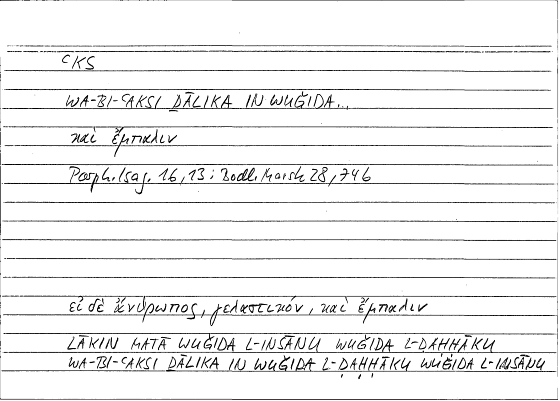 ʿKS
WA-BI-ʿAKSI ḎĀLIKA IN WUǦIDA...
καὶ ἔμπαλιν
Porph. Isag. 16,13: Bodl. Marsh 28,746
εἰ δὲ ἄνθρωπος, γελαστικόν, καὶ ἔμπαλιν
LĀKIN MATĀ WUǦIDA L-INSĀNU WUǦIDA L-ḌAḤḤĀKU
WA-BI-ʿAKSI ḎĀLIKA IN WUǦIDA L-ḌAḤḤĀKU WUǦIDA L-INSĀNU